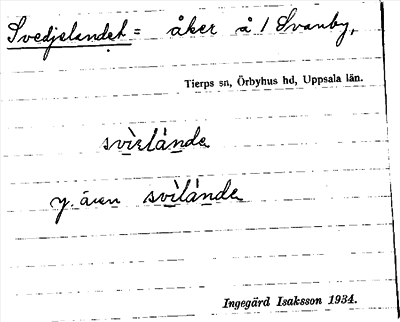 Svedjelandet = åker å 1 Svanby,
Tierps sn, Örbyhus hd, Uppsala län.
svìelànde
y. även svìlànde
Ingegärd Isaksson 1934.